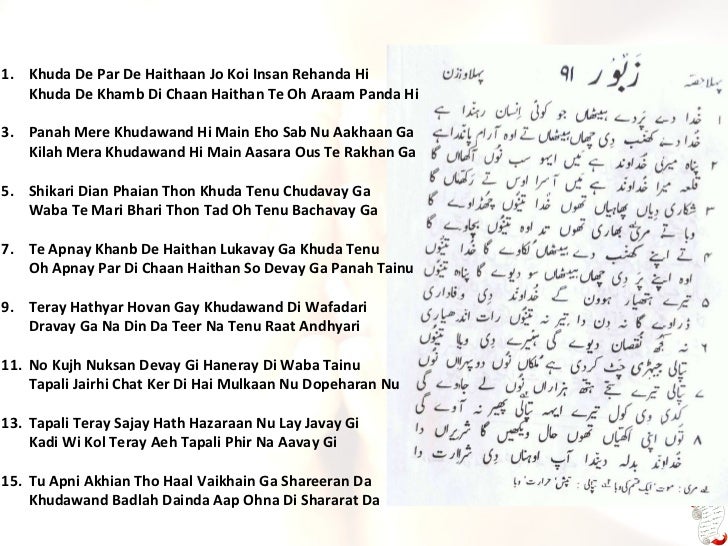 1. Khuda De Par De Haithaan Jo Koi Insan Rehanda Hi
Khuda De Khamb Di Chaan Haithan Te Oh Araam Panda Hi
3. Panah Mere Khudawand Hi Main Eho Sab Nu Aakhaan Ga
Kilah Mera Khudawand Hi Main Aasara Ous Te Rakhan Ga
5. Shikari Dian Phaian Thon Khuda Tenu Chudavay Ga
Waba Te Mari Bhari Thon Tad Oh Tenu Bachavay Ga
7. Te Apnay Khanb De Haithan Lukavay Ga Khuda Tenu
Oh Apnay Par Di Chaan Haithan So Devay Ga Panah Tainu
9. Teray Hathyar Hovan Gay Khudawand Di Wafadari
Dravay Ga Na Din Da Teer Na Tenu Raat Andhyari
11. No Kujh Nuksan Devay Gi Haneray Di Waba Tainu
Tapali Jairhi Chat Ker Di Hai Mulkaan Nu Dopeharan Nu
13. Tapali Teray Sajay Hath Hazaraan Nu Lay Javay Gi
Kadi Wi Kol Teray Aeh Tapali Phir Na Aavay Gi
15. Tu Apni Akhian Tho Haal Vaikhain Ga Shareeran Da
Khudawand Badlah Dainda Aap Ohna Di Shararat Da
پہلا حصّہ زبُور ۹۱ پہلا وزن
۱ خُدا دے پَردے ہیٹھاں جو کوئی اِنسان رہندا ہے
خُدا دے کھنب دی چھاں ہیٹھاں تے اوہ آرام پاندا ہے
۲ پناہ میری خُداوند ہے مَیں ایہو سب نُوں آکھاں گا
قلعہ میرا خُداوند ہے مَیں آسرا اوس تے رکھاں گا
۳ شکاری دِیاں پھاہیاں تھوں خُدا تینُوں چُھڈاوے گا
وبا تے مری بھاری تھوں تد اوہ تینُوں بچاوے گا
۴ تے اپنے کھنب دے ہیٹھاں لُکاوے گا خُدا تینُوں
اوہ اپنے پر دی چھاں ہیٹھاں سو دیوے گا پناہ تینُوں
۵ تیرے ہتھیار ہوون گے خُداوند دی وفاداری
ڈراوے گا نہ دِن دا تیر نہ تینُوں رات اندھیاری
۶ نہ کُجھ نُقصان دیوے گی ہنیرے دی وبا تینُوں
تپالی جیہڑی چٹ کردی ہے مُلکاں نُوں دوپہراں نُوں
۷ تپالی تیرے سجے ہتھ ہزاراں نُوں لے جاوے گی
کدی وی کول تیرے ایہہ تپالی پھیر نہ آوے گی
۸ تُوں اپنی اکھیاں تھوں حال ویکھیں گا شریراں دا
خُداوند بدلہ دیندا آپ اوہناں دی شرارت دا